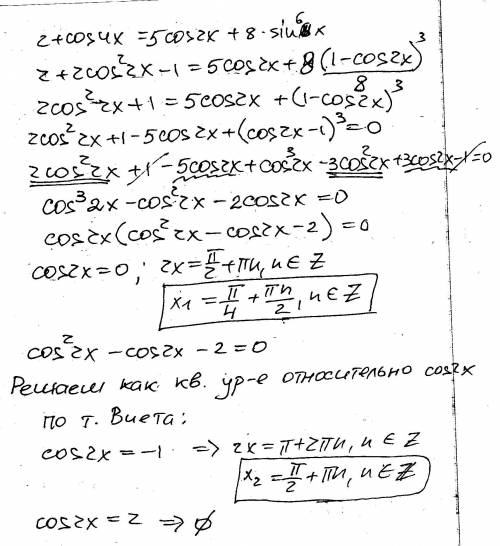 2+cos4x = 5cos2x + 8·sin⁶x
2+2cos²2x-1 = 5cos2x + 8(1-cos2x)³/8
2cos²2x+1 = 5cos2x + (1-cos2x)³
2cos²2x+1-5cos2x+(cos2x-1)³=0
2cos²2x+1-5cos2x+cos³2x-3cos²2x+3cos2x-1=0
cos³2x-cos²2x-2cos2x=0
cos2x(cos²2x-cos2x-2)=0
cos2x=0; 2x=π/2+πn, n∈Z
x₁=π/4+πn/2, n∈Z
cos²2x-cos2x-2=0
Решаем как кв. ур-е относительно cos2x
по т. Виета:
cos2x=-1 => 2x=π+2πn, n∈Z
x₂=π/2+πn, n∈Z
cos2x=2 => ∅